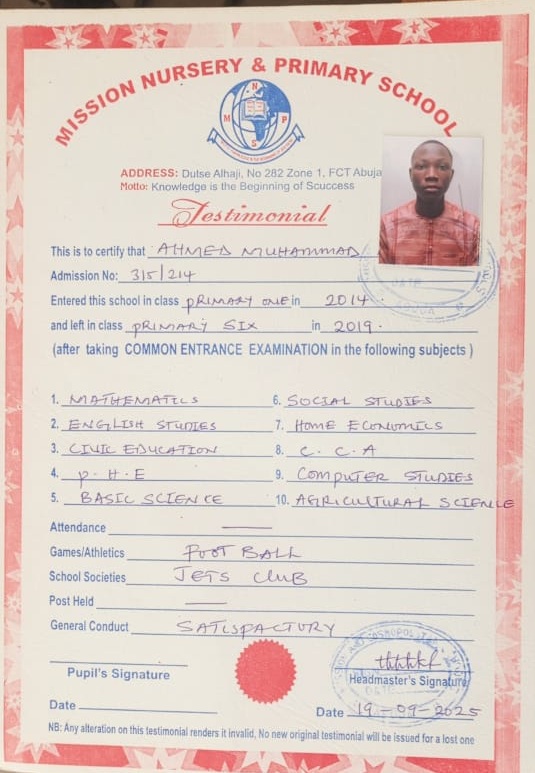 MISSION NURSERY & PRIMARY SCHOOL
N
M P
S
ADDRESS: Dutse Alhaji, No 282 Zone 1, FCT Abuja
Motto: Knowledge is the Beginning of Scuccess
Testimonial
This is to certify that AHMED MUHAMMAD
Admission No: 315/214
Entered this school in class PRIMARY ONE in 2014
and left in class PRIMARY SIX in 2019.
(after taking COMMON ENTRANCE EXAMINATION in the following subjects )
1. MATHEMATICS 6. SOCIAL STUDIES
2. ENGLISH STUDIES 7. HOME ECONOMICS
3. CIVIC EDUCATION 8. C. C. A
4. P. H. E 9. COMPUTER STUDIES
5. BASIC SCIENCE 10. AGRICULTURAL SCIENCE
Attendance
Games/Athletics FOOT BALL
School Societies JETS CLUB
Post Held
General Conduct SATISFACTORY
Pupil's Signature
Headmaster's Signature
DATE
Date
Date 19-09-2025
NB: Any alteration on this testimonial renders it invalid, No new original testimonial will be issued for a lost one